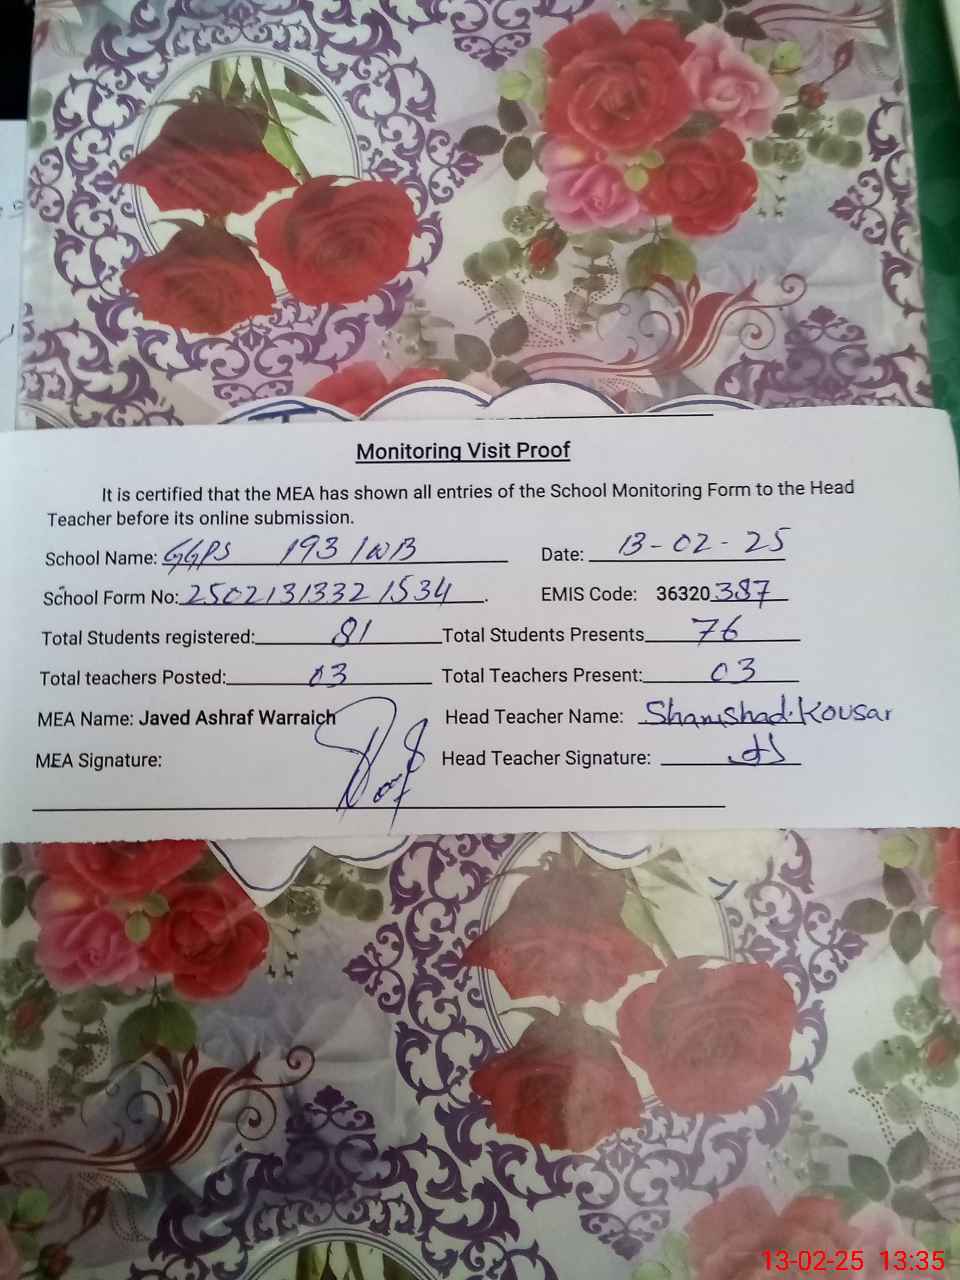 Monitoring Visit Proof
It is certified that the MEA has shown all entries of the School Monitoring Form to the Head
Teacher before its online submission.
School Name: GGPS 193/WB Date: 13-02-25
School Form No: 25021313321534. EMIS Code: 36320387
Total Students registered: 81 Total Students Presents 76
Total teachers Posted: 03 Total Teachers Present: 03
MEA Name: Javed Ashraf Warraich Head Teacher Name: Shamshad.Kousar
MEA Signature: Head Teacher Signature:
13-02-25 13:35